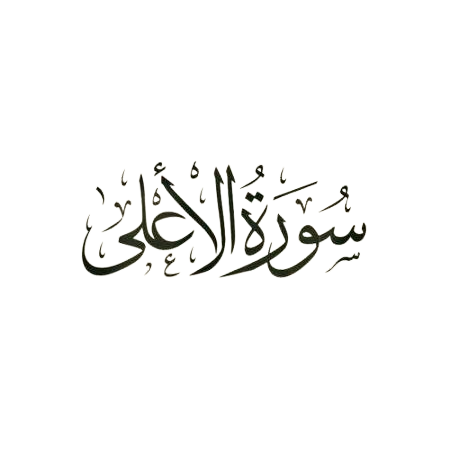 سُورَةُ الْأَعْلَى